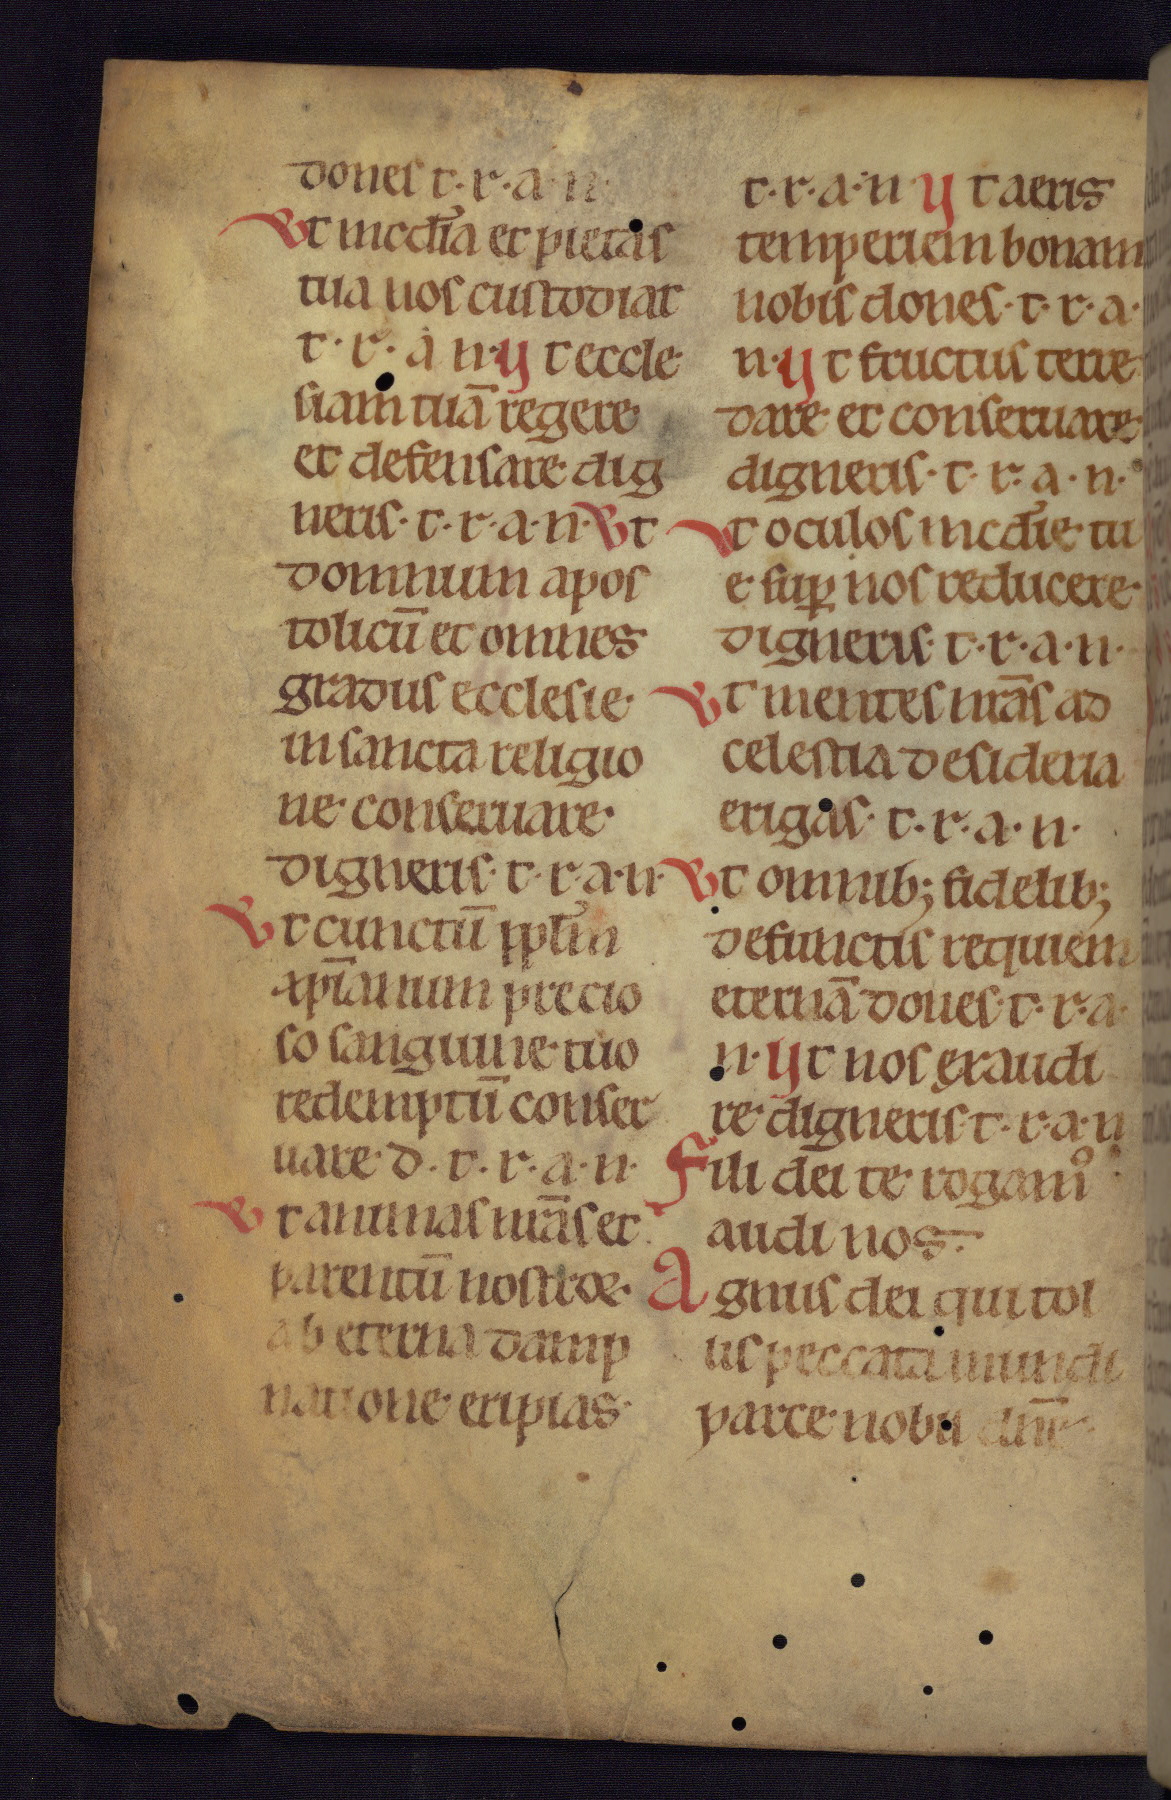 dones t·r·a·n·
Vt mcdīa et pietas
tua nos custodiat
t·r·a·n·Vt eccle
siam tuā regere
et defensare dig
neris·t·r·a·n·Vt
domnum apos
tolicū et omnes
gradus ecclesie·
in sancta religio
ne conseruare
digneris·t·r·a·n·
Vt cunctū ppłm
xp̄ianum precio
so sanguine tuo
redemptū conser
uare d·t·r·a·n·
Vt animas nr̄as et
parentū nostroꝝ
ab eterna damp
natione eripias·
t·r·a·n Vt aeris
temperiem bonam
nobis dones·t·r·a·
n·Vt fructus terre
dare et conseruare
digneris·t·r·a·n·
Vt oculos mcdīe tu
e suꝑ nos reducere
digneris·t·r·a·n·
Vt mentes nr̄as ad
celestia desideria
erigas·t·r·a·n·
Vt omnib; fidelib;
defunctis requiem
eternā dones·t·r·a·
n·Vt nos exaudi
re digneris·t·r·a·n
Fili dei te rogamꝰ
audi nos·
Agnus dei qui tol
lis peccata mundi
parce nobis dn̄e